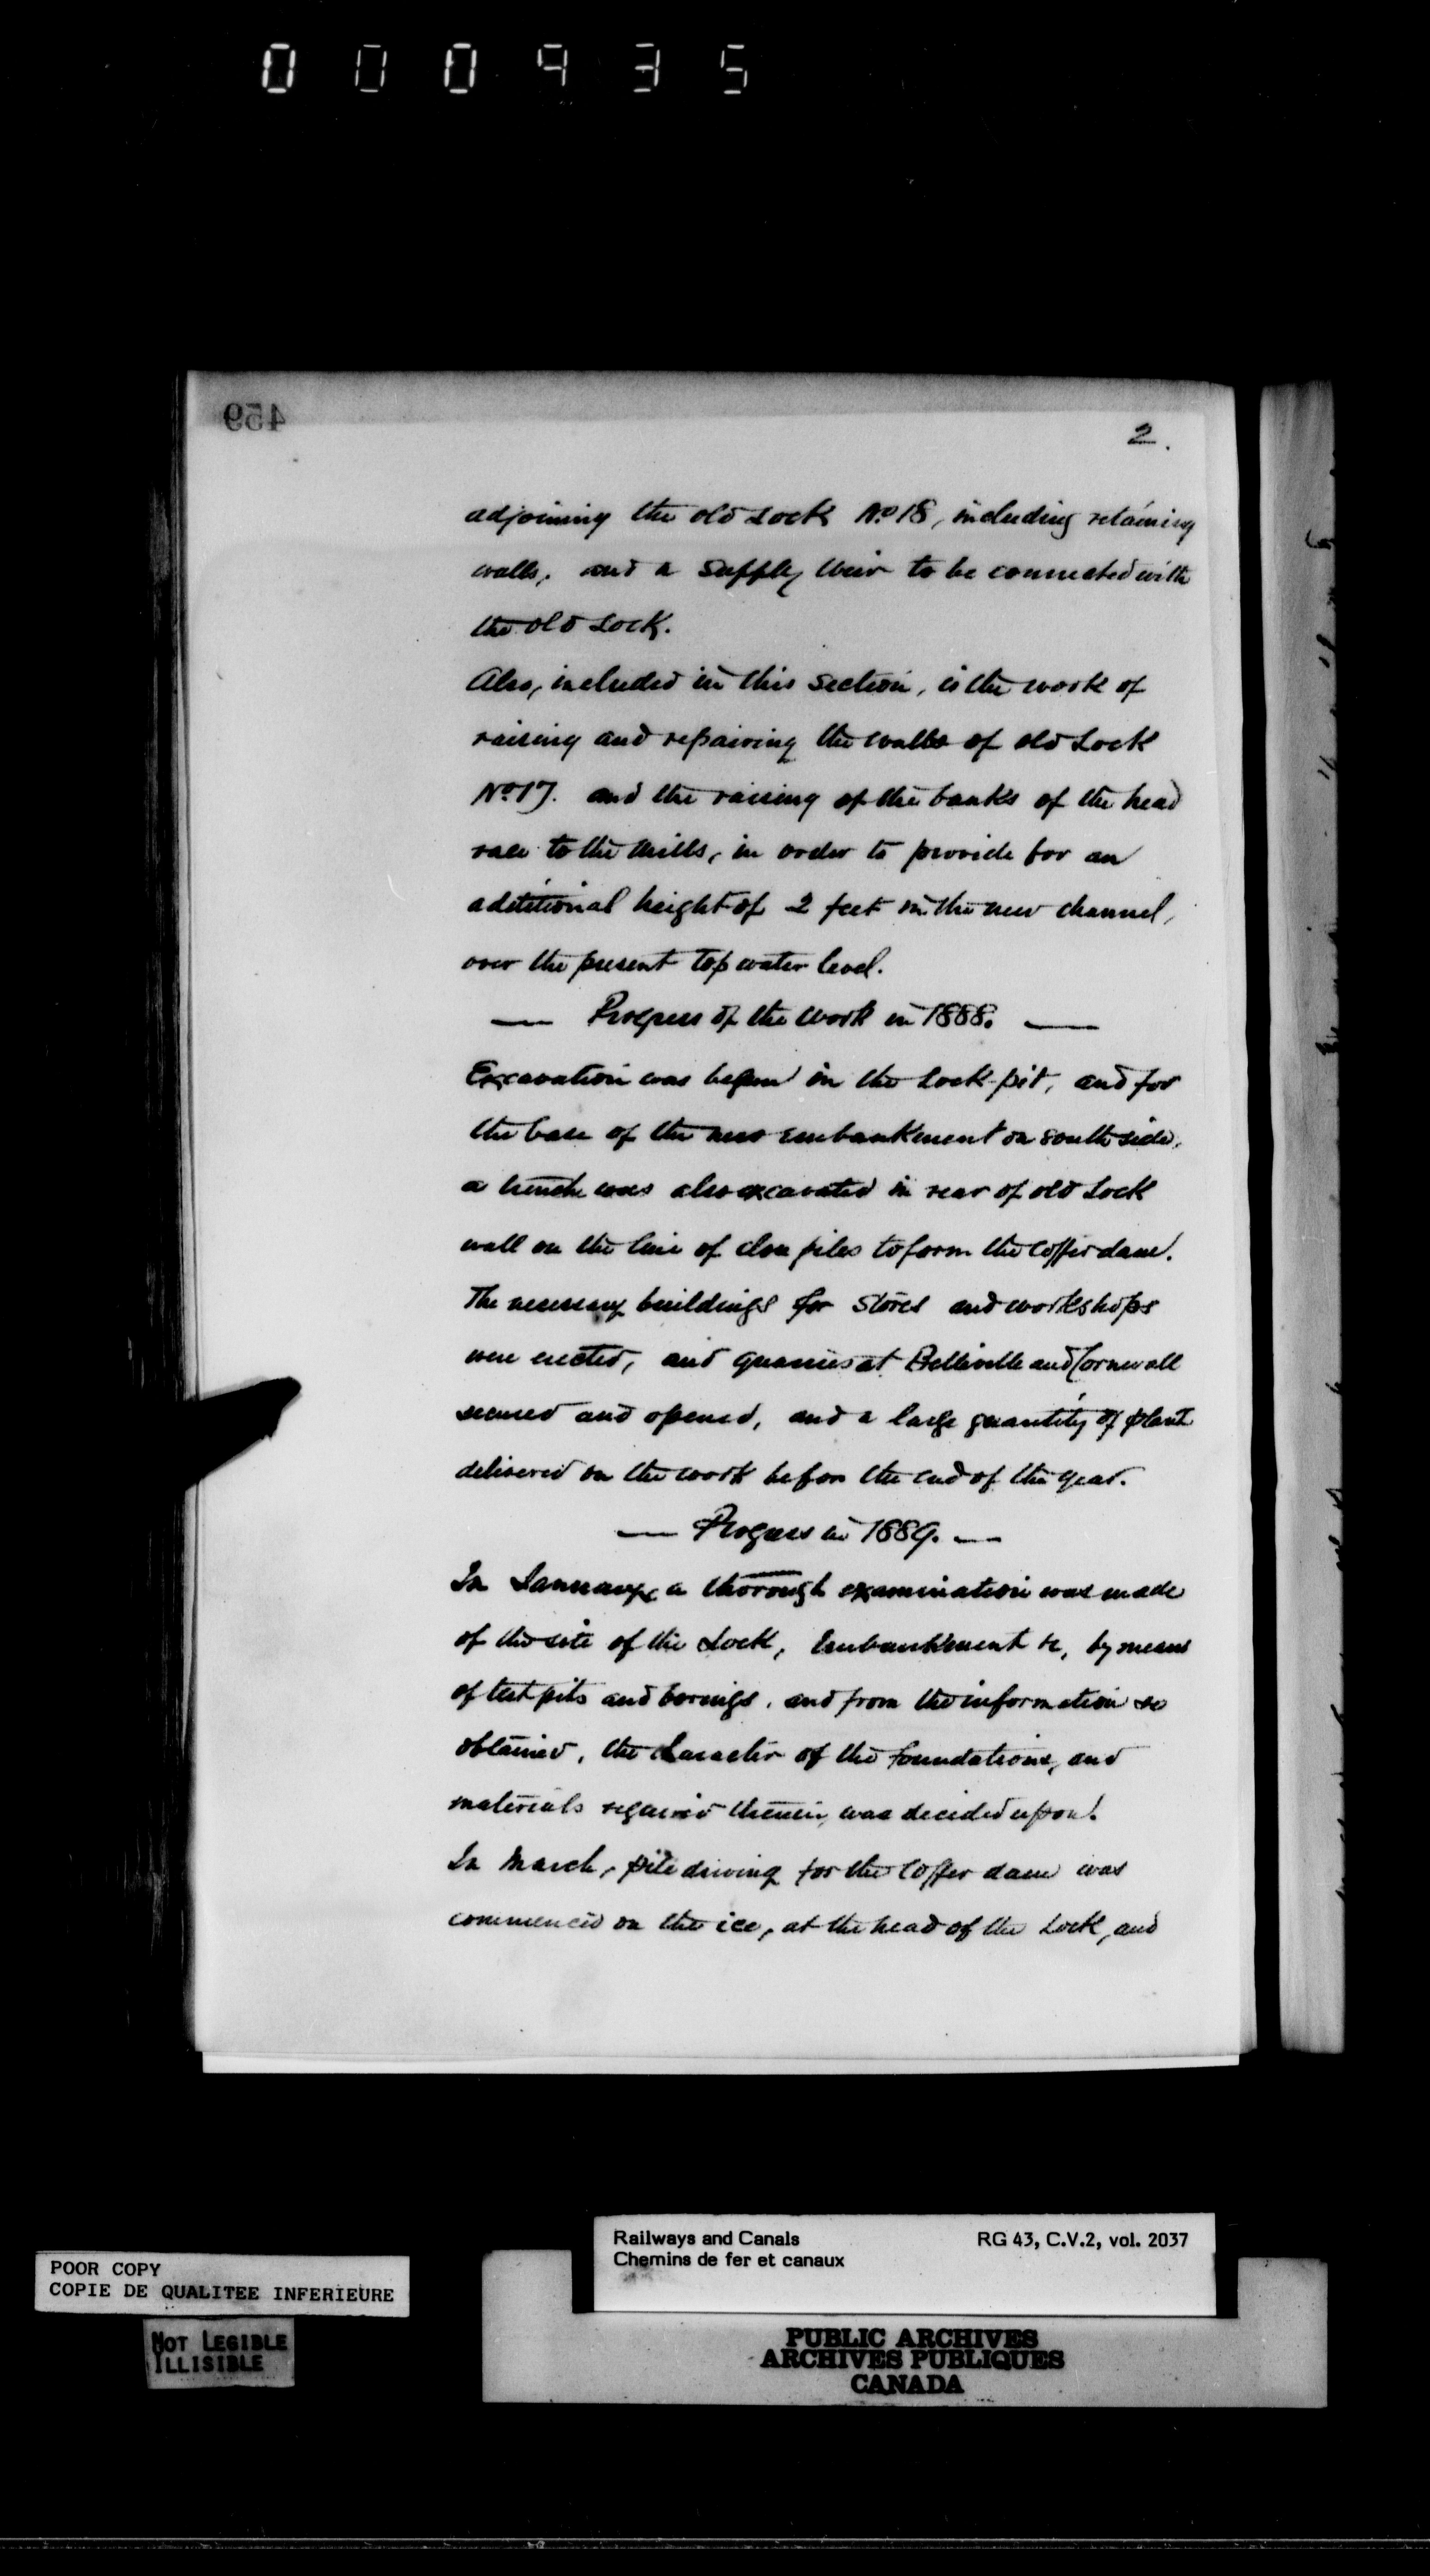 000935
459
2.
adjoining the old Lock No 18, including retaining
walls, and a supply weir to be connected with
the old Lock.
Also, included in this section, is the work of
raising and repairing the walls of old Lock
No 17. and the raising of the banks of the head
race to the mills, in order to provide for an
additional height of 2 feet in the new channel,
over the present top water level.
— Progress of the work in 1888. —
Excavation was begun in the Lock-pit, and for
the base of the new embankment on south side,
a trench was also excavated in rear of old Lock
wall on the line of close piles to form the cofferdam.
The necessary buildings for stores and workshops
were erected, and quarries at Belleville and Cornwall
secured and opened, and a large quantity of plant
delivered on the work before the end of the year.
— Progress in 1889. —
In January, a thorough examination was made
of the site of the Lock, Embankment &c, by means
of test pits and borings, and from the information so
obtained, the character of the foundations, and
materials required therein, was decided upon.
In March, pile driving for the coffer dam was
commenced on the ice, at the head of the Lock, and
Railways and Canals RG 43, C.V.2, vol. 2037
Chemins de fer et canaux
POOR COPY
COPIE DE QUALITEE INFERIEURE
NOT LEGIBLE
ILLISIBLE
PUBLIC ARCHIVES
ARCHIVES PUBLIQUES
CANADA